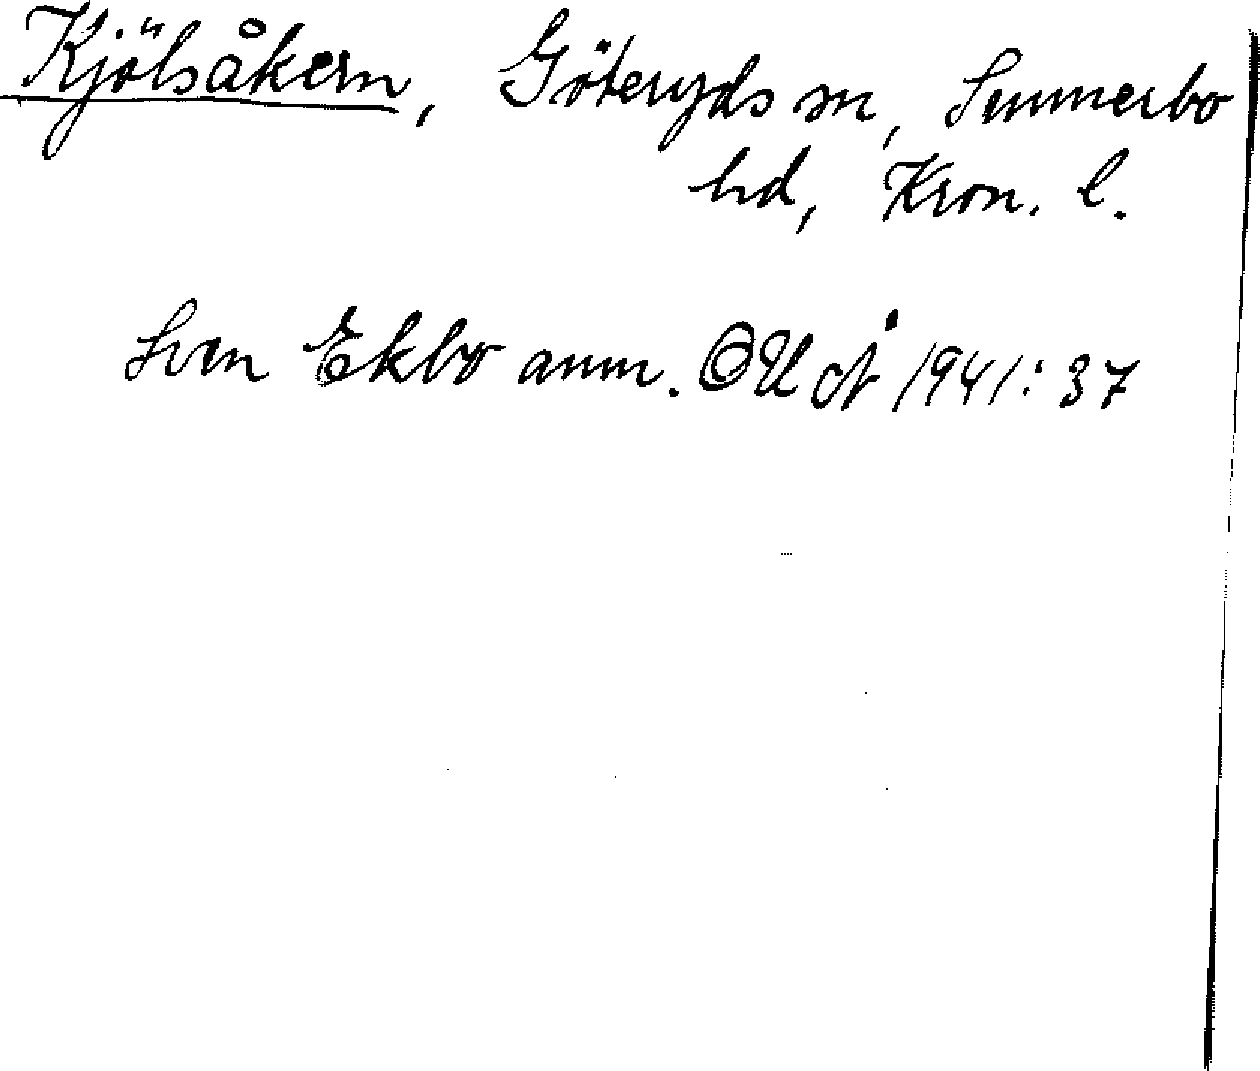 Kjölsåkern, Göteryds sn, Sunnerbo
hd, Kron. l.
Sven Ekbo anm. OUÅ 1941: 37